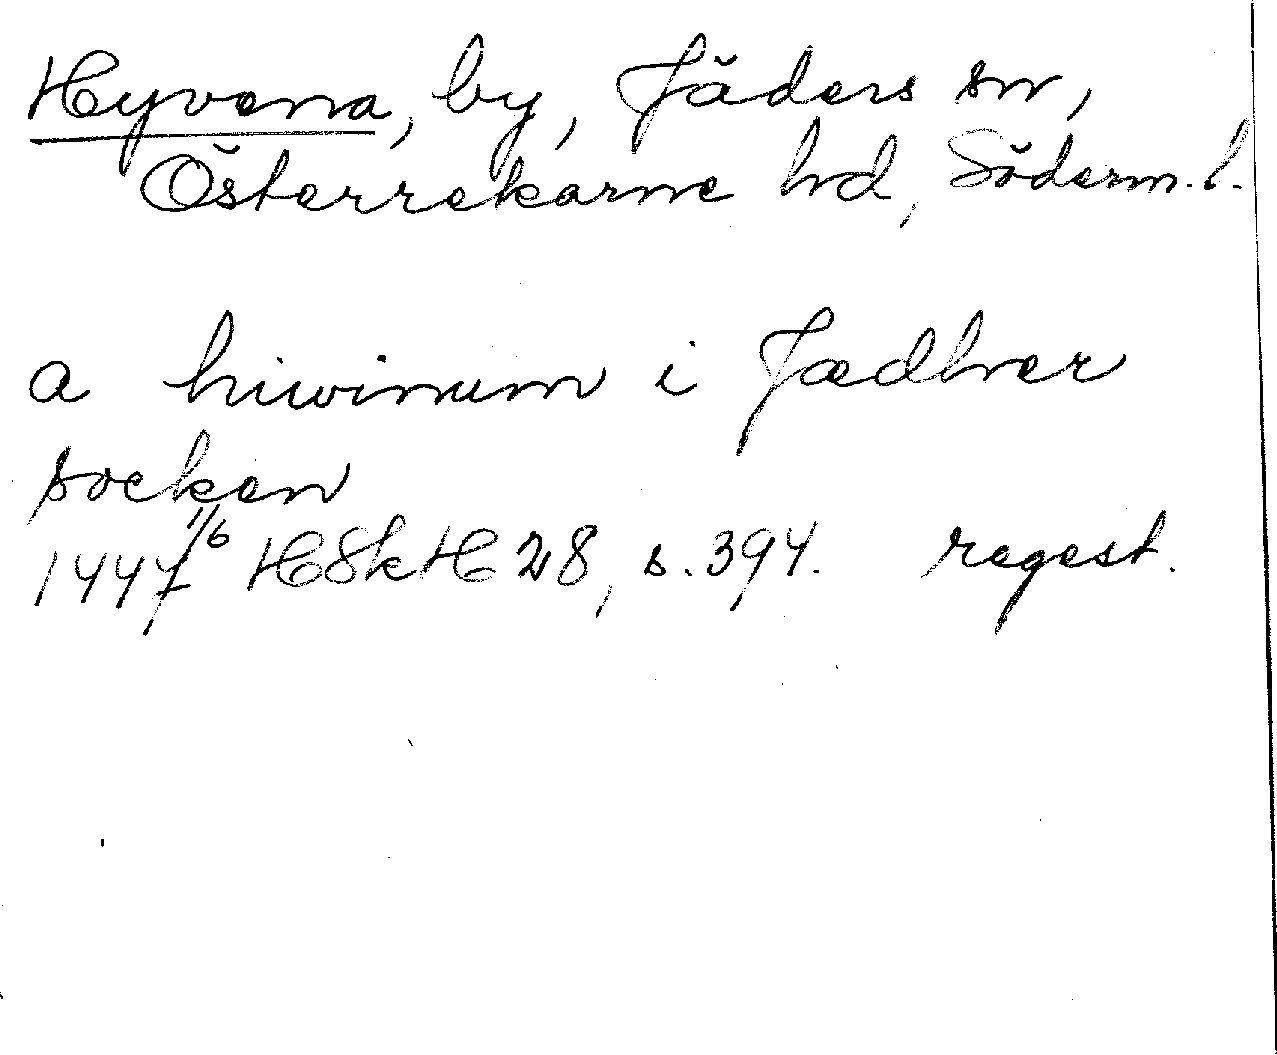 Hyvena, by, Jäders sn,
Österrekarne hd, Söderm. l.
a hiwinum i Jædher
socken
1447 1/6 HSkH 28, s. 394. regest.